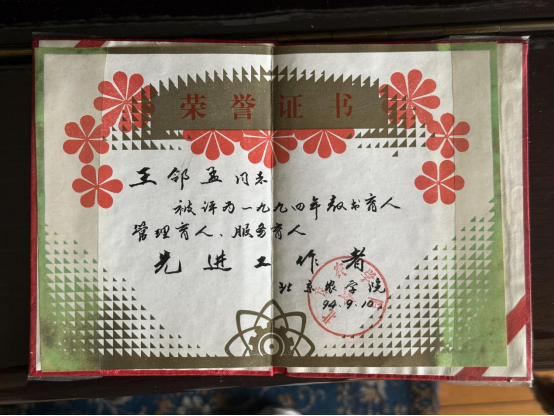 荣誉证书
王邻孟同志
被评为一九九四年教书育人
管理育人、服务育人
先进工作者
北京农学院
94.9.10.